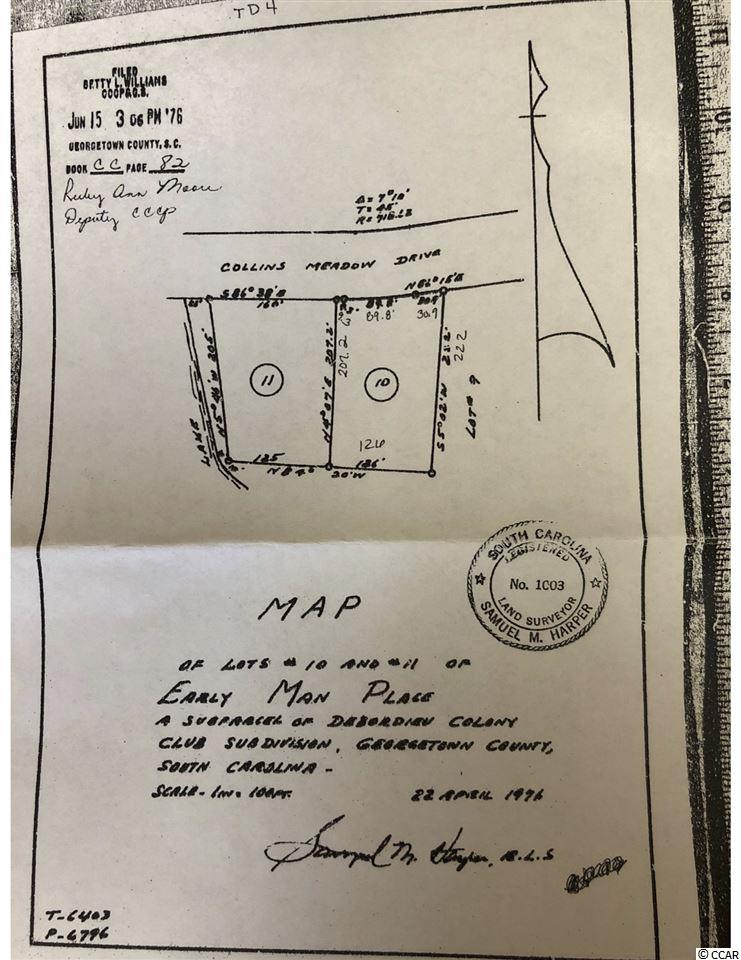 TD4
FILED
BETTY L. WILLIAMS
CCCP&G.S.
JUN 15 3 06 PM '76
GEORGETOWN COUNTY, S.C.
BOOK CC PAGE 82
Ruby Ann Moore
Deputy CCCP
Δ = 7° 10'
T = 45'
R = 716.23
COLLINS MEADOW DRIVE
S 86° 38' E
160'
N 86° 15' E
89.8'
30.9
25'
89.8'
30.9
N 5° 46' W 205'
N 4° 07' E 207.2'
207.2
S 5° 02' W 222
222
LOT # 9
LAKE
11
10
126
125
N 84°
20' W
126'
SOUTH CAROLINA
REGISTERED
No. 1003
LAND SURVEYOR
SAMUEL M. HARPER
MAP
OF LOTS #10 AND #11 OF
EARLY MAN PLACE
A SUBPARCEL OF DEBORDIEU COLONY
CLUB SUBDIVISION, GEORGETOWN COUNTY,
SOUTH CAROLINA -
SCALE - 1 IN = 100 FT.
22 APRIL 1976
Samuel M. Harper, R.L.S
T-6403
P-6796
© CCAR